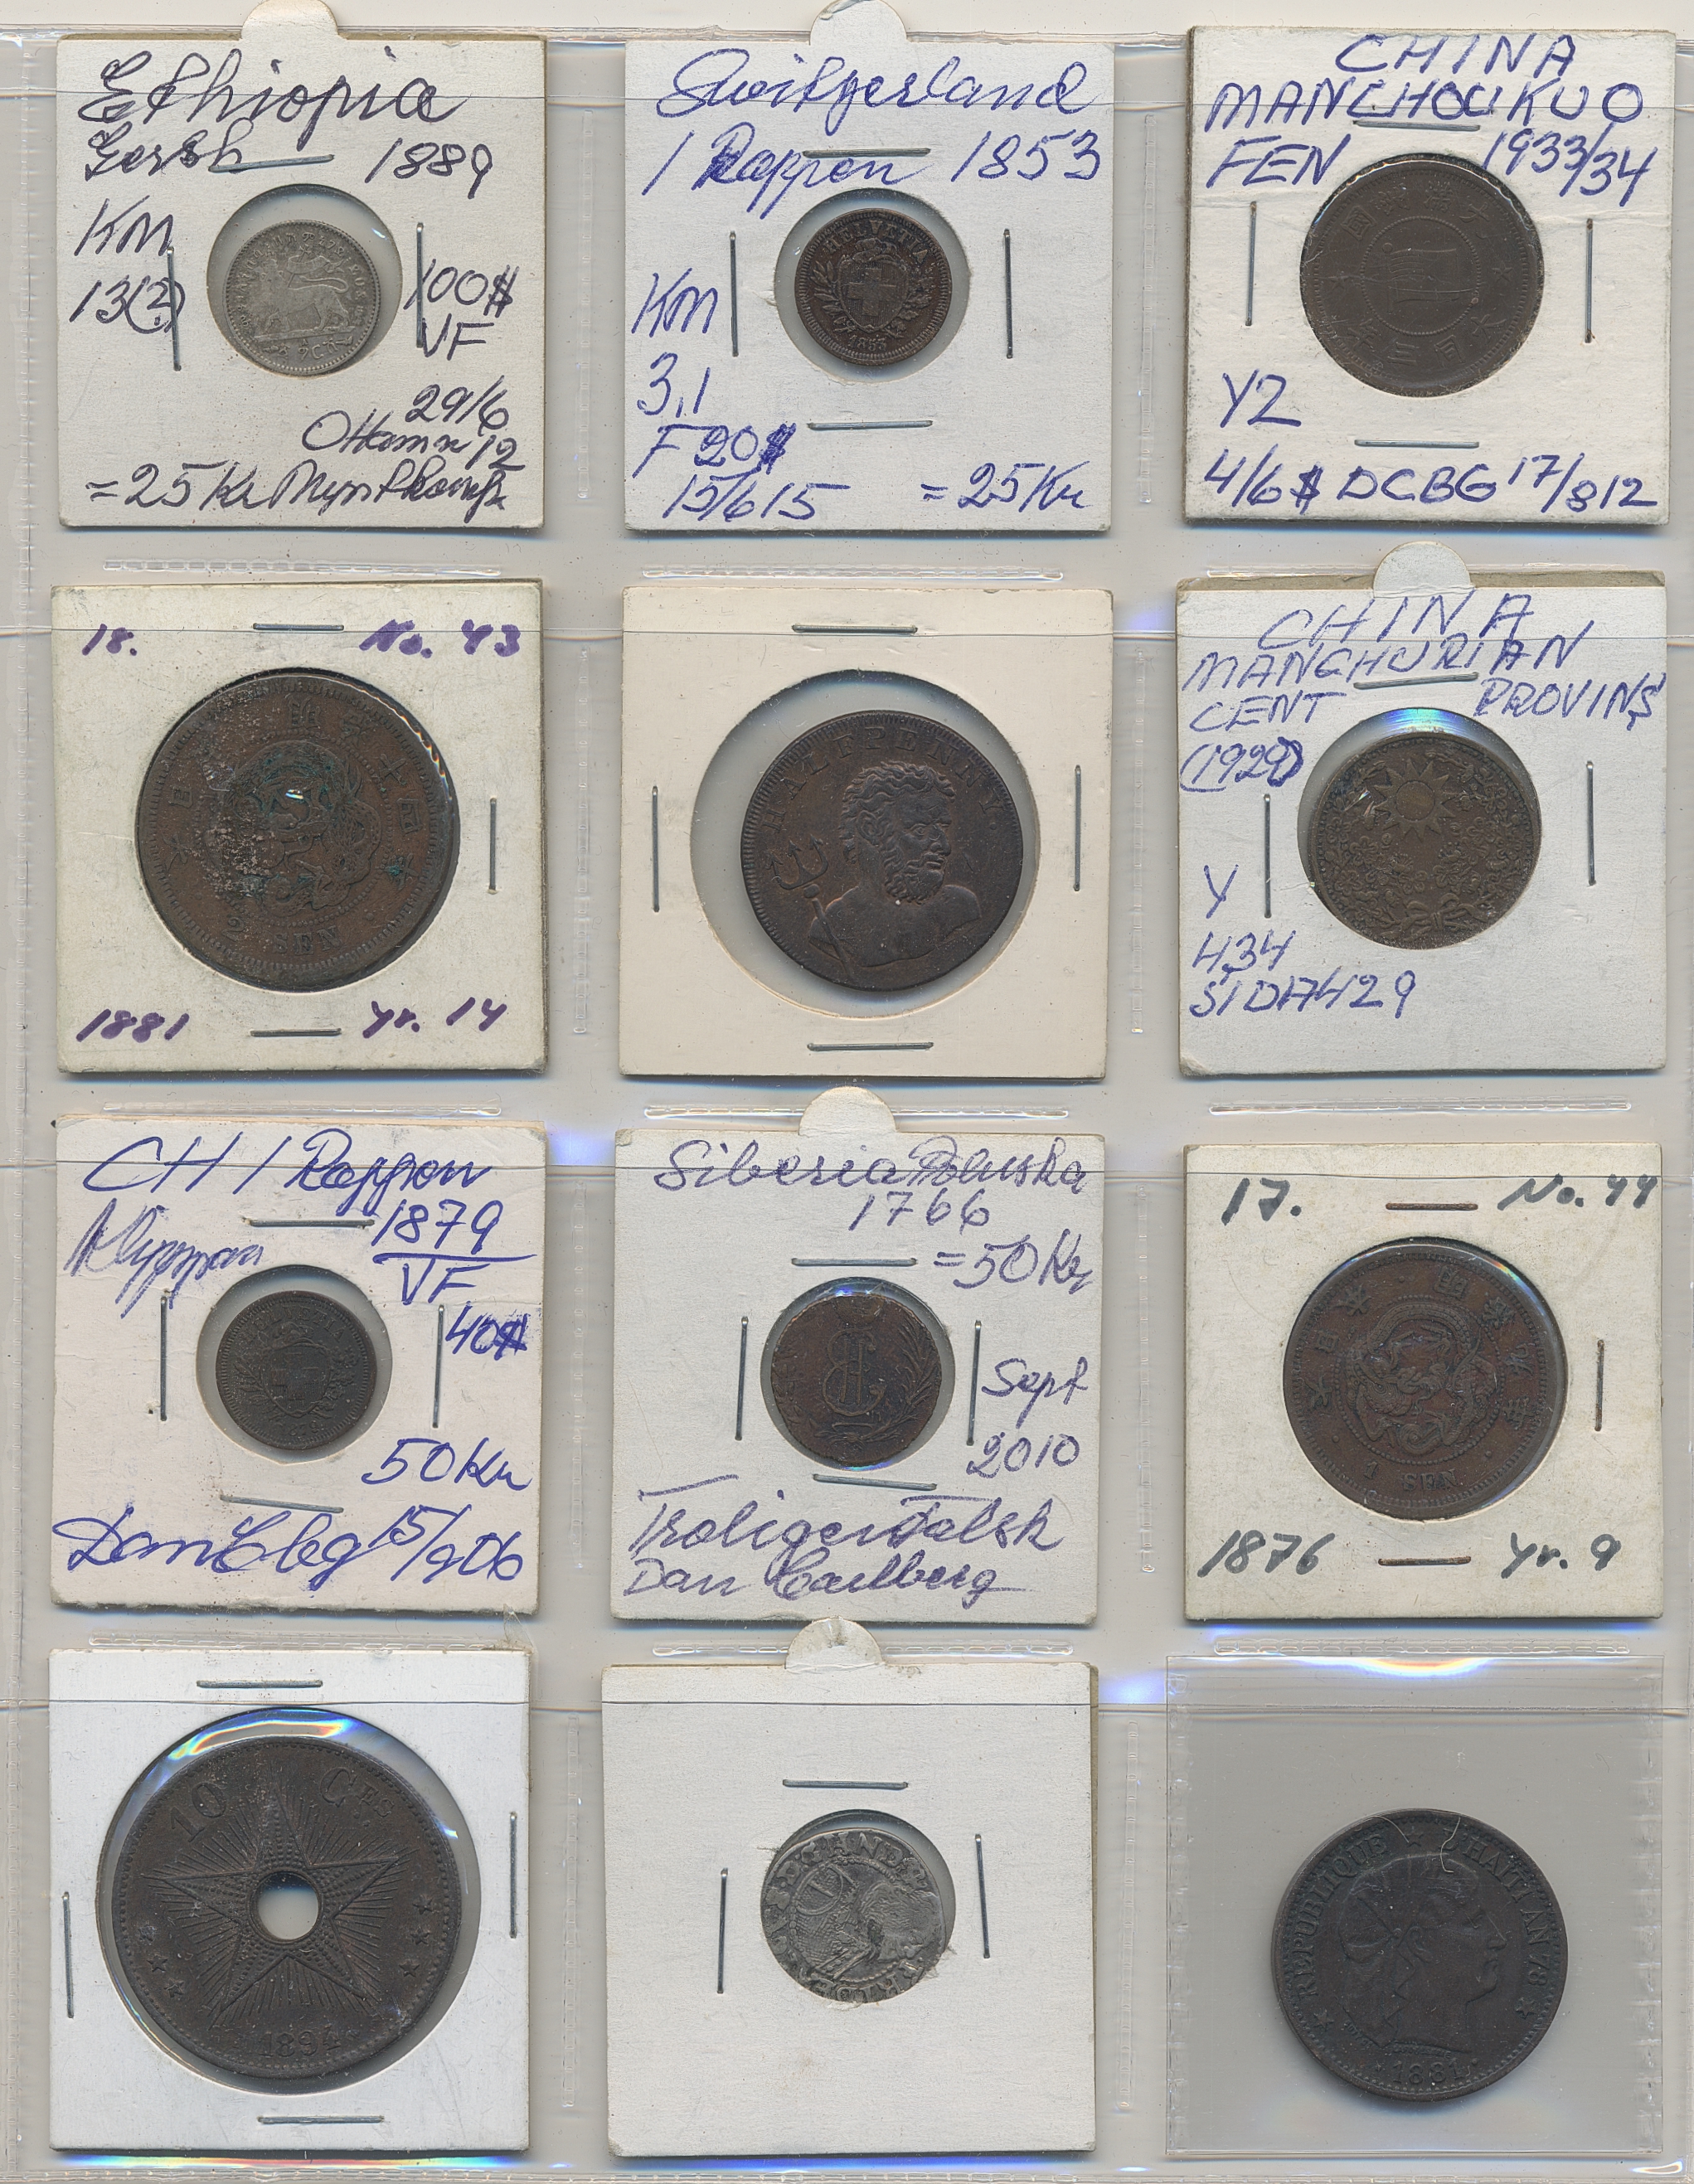 Ethiopia
Gersh 1889
KM
13(?)
100$
VF
29/6
12
=25 Kr
Switzerland
1 Rappen 1853
HELVETIA
1853
KM
3,1
F 20$
15/6 15 =25 Kr
CHINA
MANCHOUKUO
FEN 1933/34
Y2
4/6$ DCBG 17/8 12
18. No. 43
SEN
1881 yr. 14
HALFPENNY
CHINA
MANCHURIAN
CENT PROVINS
(1929)
Y
434
CH 1 Rappen
1879
VF
40$
50 Kr
15/9 06
Siberia Poluska
1766
=50 Kr
Sept
2010
Troligen Falsk
Dan Carlberg
17. No. 44
1 SEN
1876 yr. 9
10 CES
1894
REPUBLIQUE D'HAITI AN 78
1881